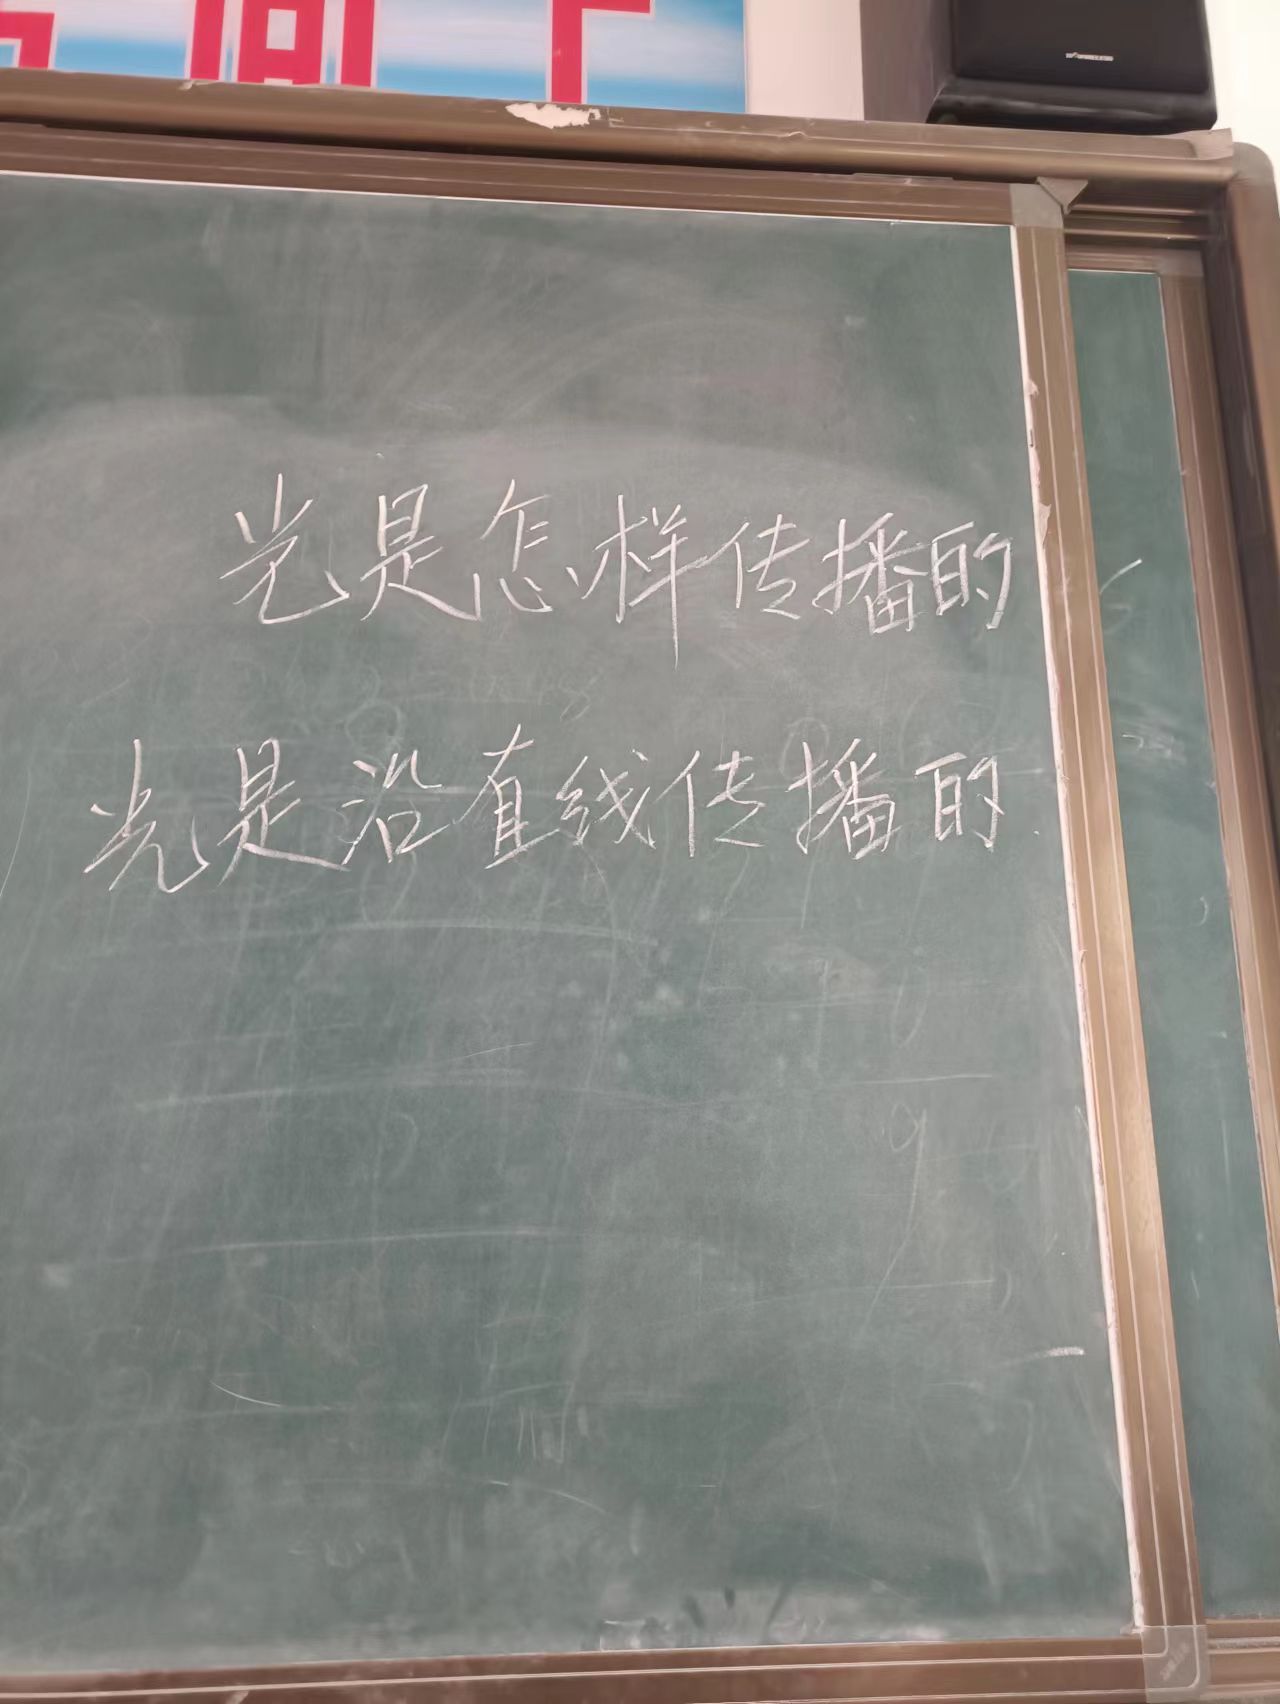 光是怎样传播的
光是沿直线传播的